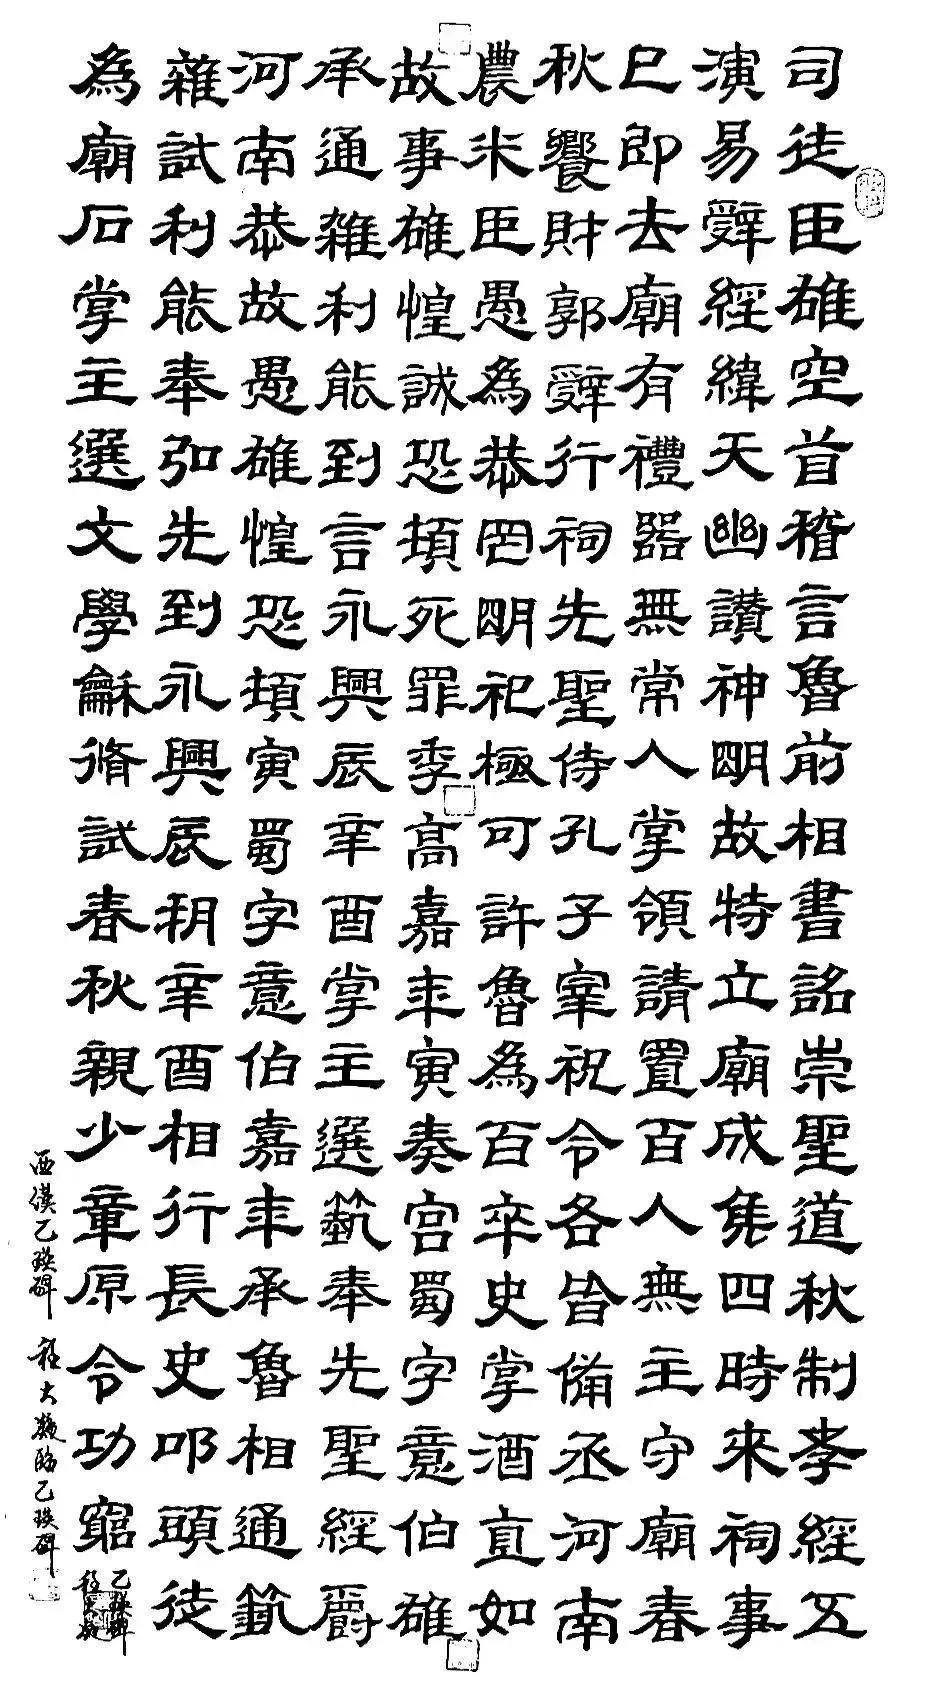 司徒臣雄空首稽言魯前相書詺崇聖道秋制孝經五
演易辭經緯天幽讃神明故特立廟成矦四時来祠事
已即去廟有禮器無常人掌領請置百人無主守廟春
秋饗財郭辭行祠先聖侍孔子宰祝令各皆備丞河南
農米臣愚為恭罔明祀極可許魯為百卒史掌酒直如
故事雄惶誠恐頓死罪季高嘉年寅奏宮蜀字意伯雄
承通雜利能到言永興辰辛酉掌主選筑奉先聖經爵
河南恭故愚雄惶恐頓寅蜀字意伯嘉年承魯相通筑
雜試利能奉弘先到永興辰朔辛酉相行長史叩頭徒
為廟石掌主選文學龢脩試春秋親少章原令功窮
西漢乙瑛碑 程大凝臨乙瑛碑
乙瑛碑